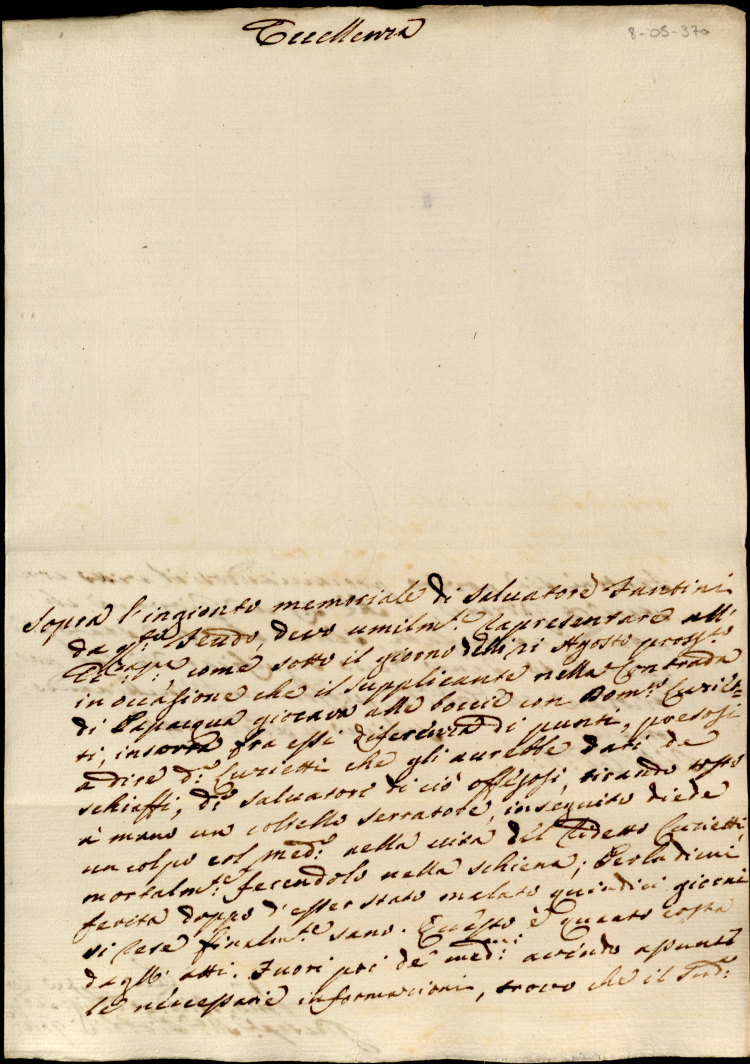 Eccellenza
8-05-370
Sopra l'ingionto memoriale di Salvatore Fantini
da q.to Feudo, devo umilm.te rapresentare all'
come sotto il giorno delli 21 Agosto prossto
in occasione che il supplicante nella Contrada
di Papacqua giocava alle boccie con Dom.co Curiet=
ti, insorta fra essi diferenza di punti, presosi
a dire d.o Curietti che gli aurebbe dati de
schiaffi, d.o Salvatore di ciò offesosi, tirando tosto
à mano un coltello serratore, in seguito diede
un colpo col med.o nella vita del sudetto Curietti,
mortalm.te fecendolo nella schiena; Per la di cui
ferita doppo d'esser stato malato quindici giorni
si rese finalm.te sano. Questo è quanto costa
dagl'atti. Fuori poi de med.mi avendo apunto
le necessarie informazioni, trovo che il Sud.o